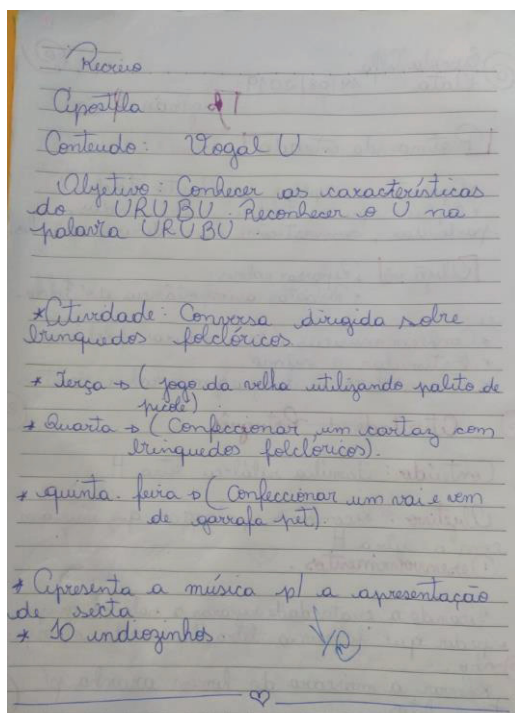 Recreio
Apostila
Conteudo: Vogal U
Objetivo: Conhecer as características
do URUBU. Reconhecer o U na
palavra URUBU
*Atividade: Conversa dirigida sobre
brinquedos folclóricos
* Terça → (jogo da velha utilizando palito de
picolé)
* Quarta → (Confeccionar um cartaz com
brinquedos folclóricos).
* quinta-feira → (Confeccionar um vai e vem
de garrafa pet)
* Apresenta a música p/ a apresentação
de sexta
* 10 indiozinhos